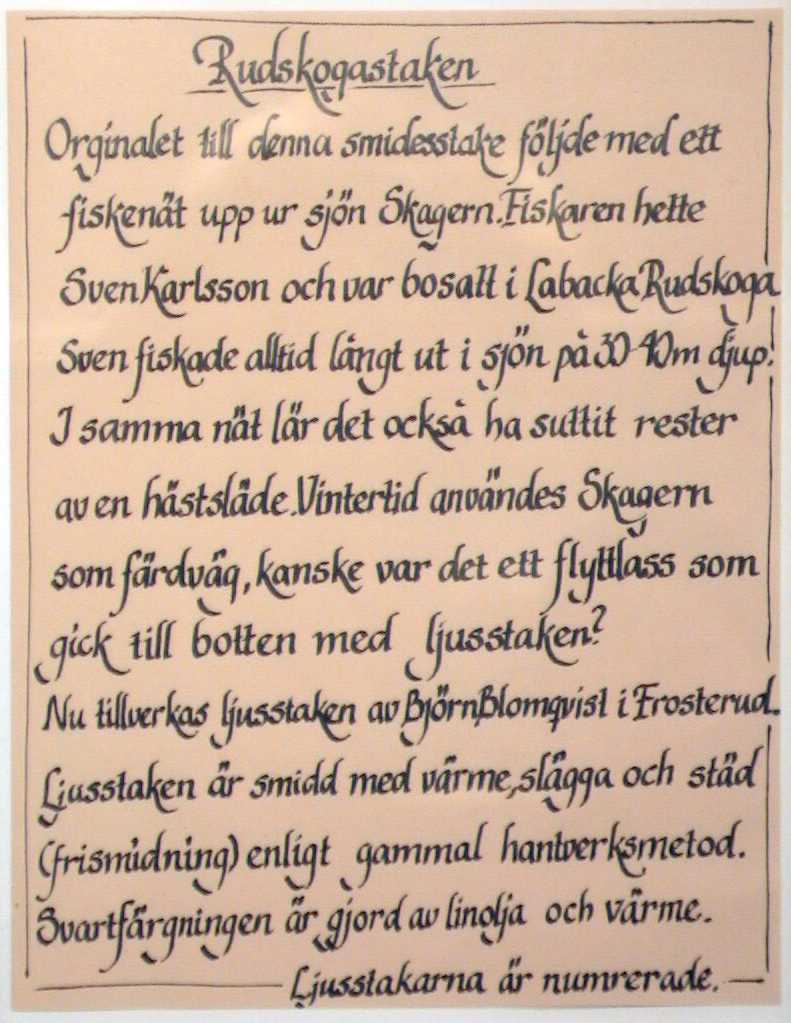 Rudskogastaken
Orginalet till denna smidesstake följde med ett
fiskenät upp ur sjön Skagern. Fiskaren hette
Sven Karlsson och var bosatt i Labacka Rudskoga
Sven fiskade alltid långt ut i sjön på 30-40m djup.
I samma nät lär det också ha suttit rester
av en hästsläde. Vintertid användes Skagern
som färdväg, kanske var det ett flyttlass som
gick till botten med ljusstaken?
Nu tillverkas ljusstaken av Björn Blomqvist i Frosterud.
Ljusstaken är smidd med värme, slägga och städ
(frismidning) enligt gammal hantverksmetod.
Svartfärgningen är gjord av linolja och värme.
Ljusstakarna är numrerade.